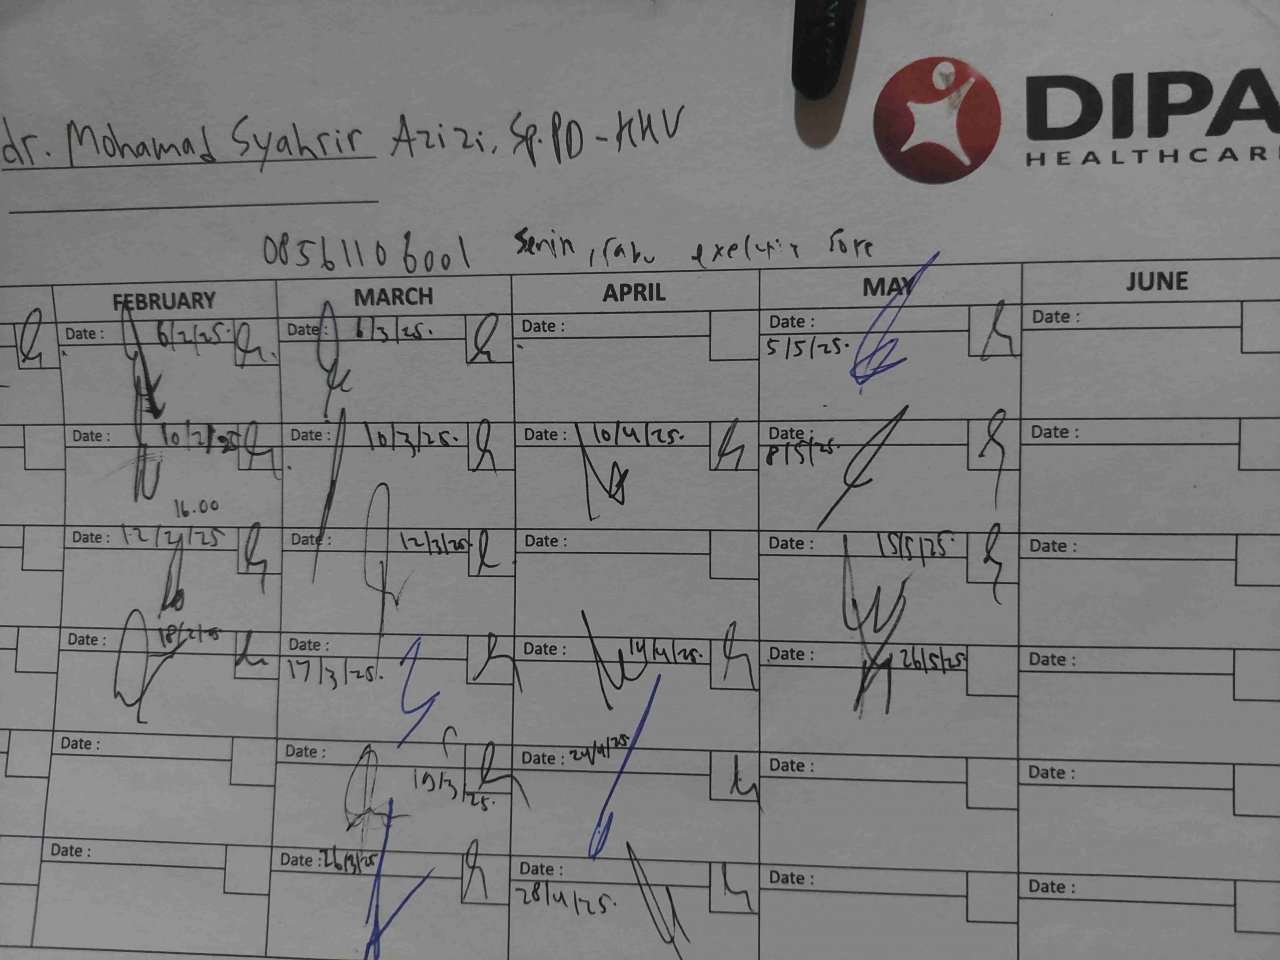 DIPA
HEALTHCAR
dr. Mohamad Syahrir Azizi, Sp.PD-KHV
08561106001 Senin, rabu exekutiv sore
FEBRUARY MARCH APRIL MAY JUNE
Date: 6/2/25. Date: 6/3/25. Date: Date: 5/5/25. Date:
Date: 10/2/25 Date: 10/3/25. Date: 10/4/25. Date: 8/5/25. Date:
16.00
Date: 12/2/25 Date: 12/3/25. Date: Date: 15/5/25. Date:
Date: 18/2/25 Date: 17/3/25. Date: 14/4/25. Date: 26/5/25 Date:
Date: Date: 19/3/25. Date: 24/4/25. Date: Date:
Date: Date: 26/3/25 Date: 28/4/25. Date: Date: